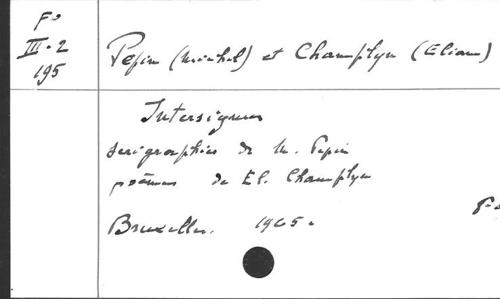 F°
III-2
195
Pepin (Michel) et Champlyn (Eliane)
Intersignes
serigraphies de M. Pepin
poèmes de El. Champlyn
Bruxelles. 1965.